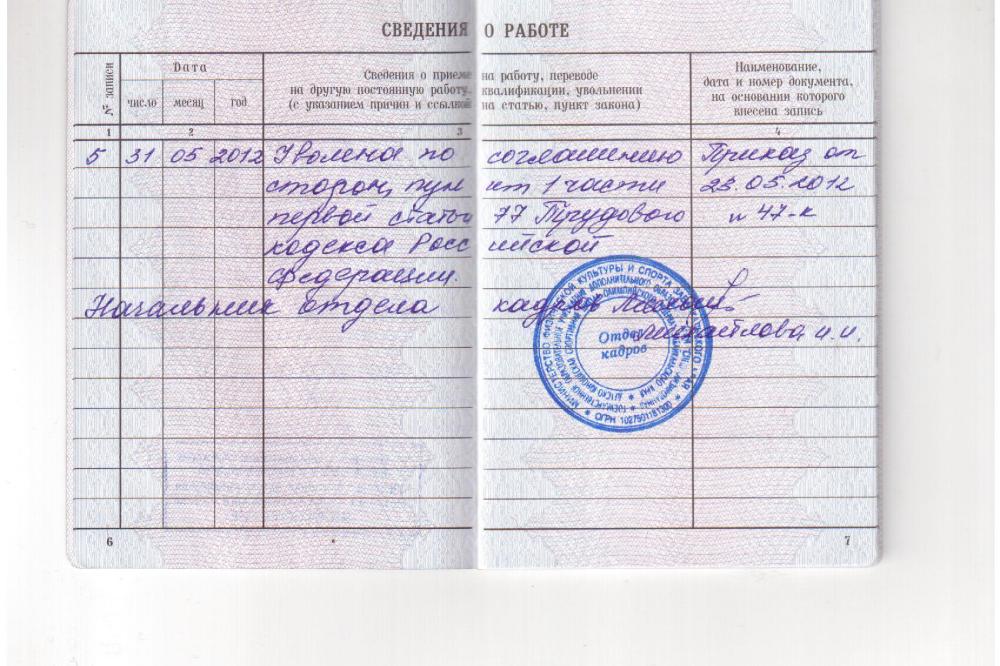 СВЕДЕНИЯ О РАБОТЕ
№ записи
Дата
Сведения о приеме на работу, переводе
на другую постоянную работу, квалификации, увольнении
(с указанием причин и ссылкой на статью, пункт закона)
Наименование,
дата и номер документа,
на основании которого
внесена запись
число месяц год
1 2 3 4
5 31 05 2012 Уволена по соглашению Приказ от
сторон, пункт 1 части 23.05.2012
первой статьи 77 Трудового № 47-к
кодекса Российской
Федерации.
Начальник отдела кадров
Михайлова И.И.
Отдел
кадров
МИНИСТЕРСТВО ФИЗИЧЕСКОЙ КУЛЬТУРЫ И СПОРТА
6 7